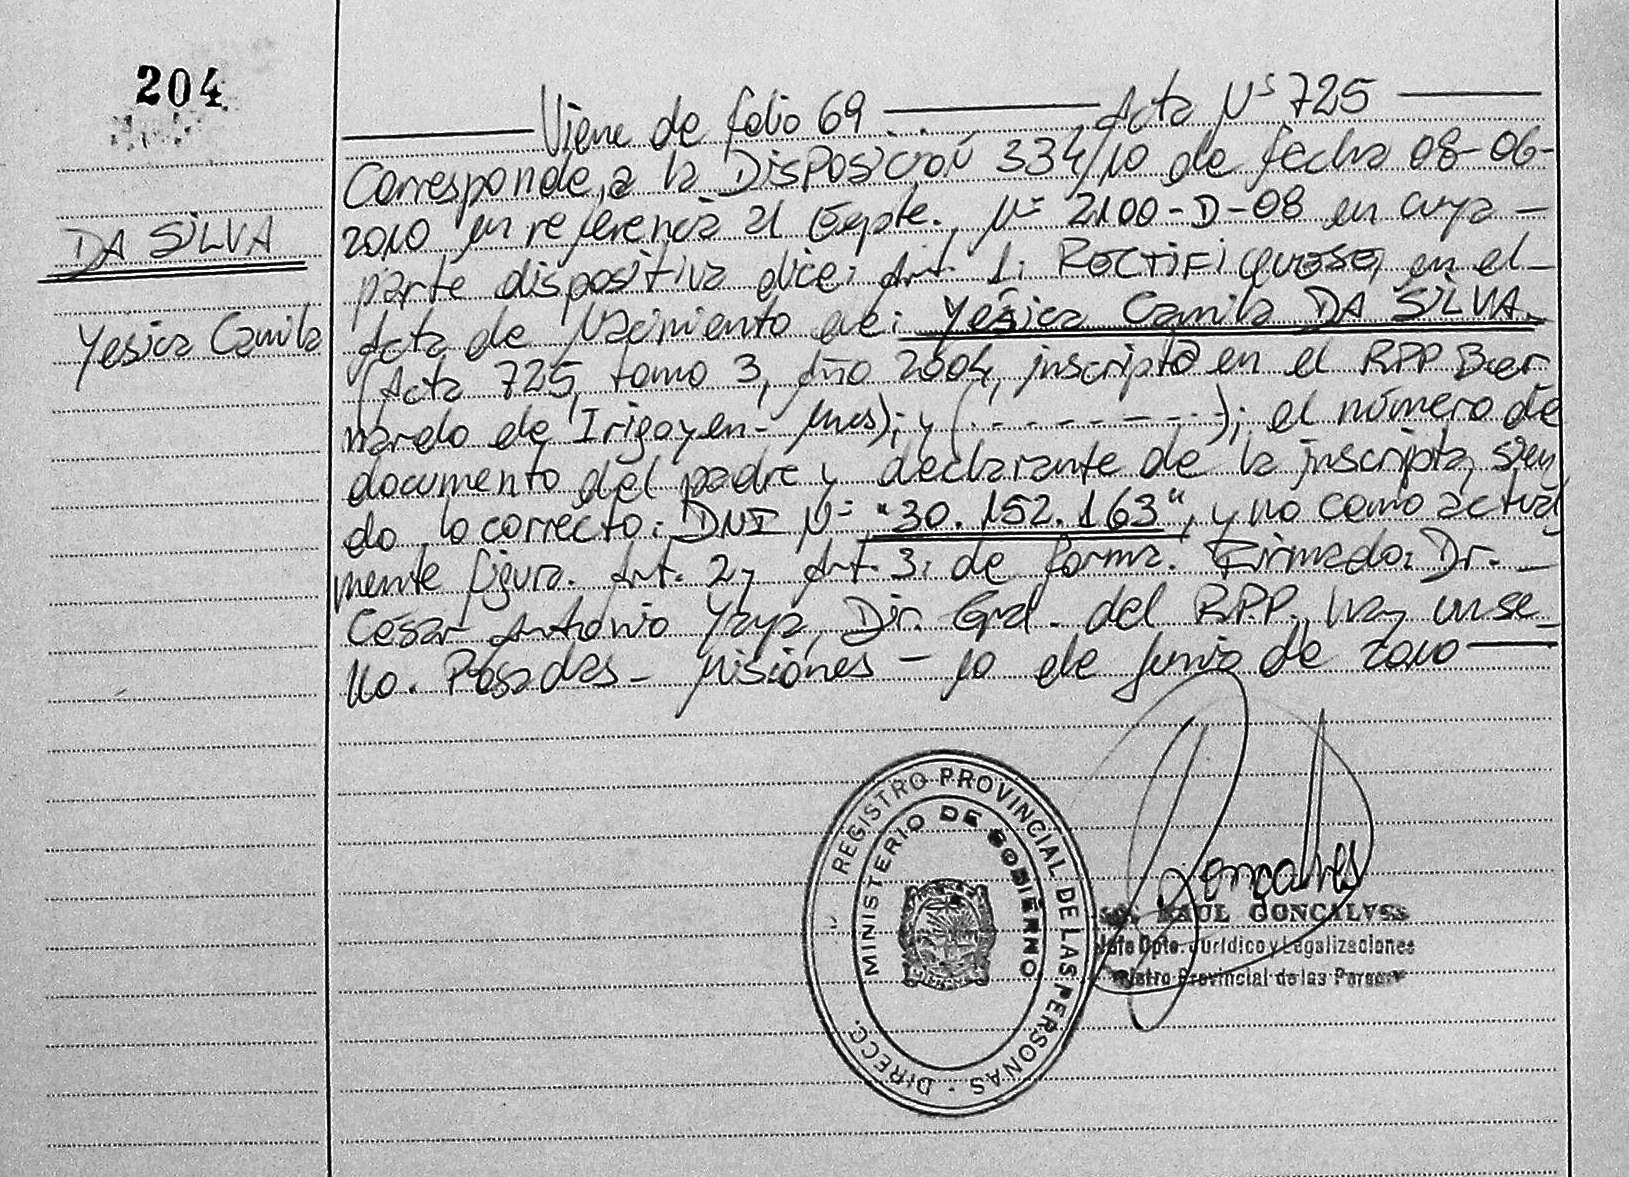 204
DA SILVA
Yesica Camila
Viene de folio 69 — Acta Nº 725 —
Corresponde, a la DISPOSICIÓN 334/10 de fecha 08-06-
2010 en referencia al Expte. Nº 2100-D-08 en cuya -
parte dispositiva dice: Art. 1: RECTIFIQUESE, en el -
Acta de Nacimiento de: Yésica Camila DA SILVA.
(Acta 725, tomo 3, Año 2004, inscripta en el RPP Ber
nardo de Irigoyen - Mnes); y (.. - - - - - ..); el número de
documento del padre y declarante de la inscripta, sien
do lo correcto: DNI Nº "30.152.163", y no como actual
mente figura. Art. 2 y Art. 3: de forma. Firmado: Dr. -
César Antonio Yaya, Dir. Gral. del R.P.P., hay un se-
llo. Posadas - Misiones - 10 de Junio de 2010 —
REGISTRO PROVINCIAL DE LAS PERSONAS - DIRECC.
MINISTERIO DE GOBIERNO
Goncalves
RAUL GONCALVES
Jefe Dpto. Jurídico y Legalizaciones
Provincial de las